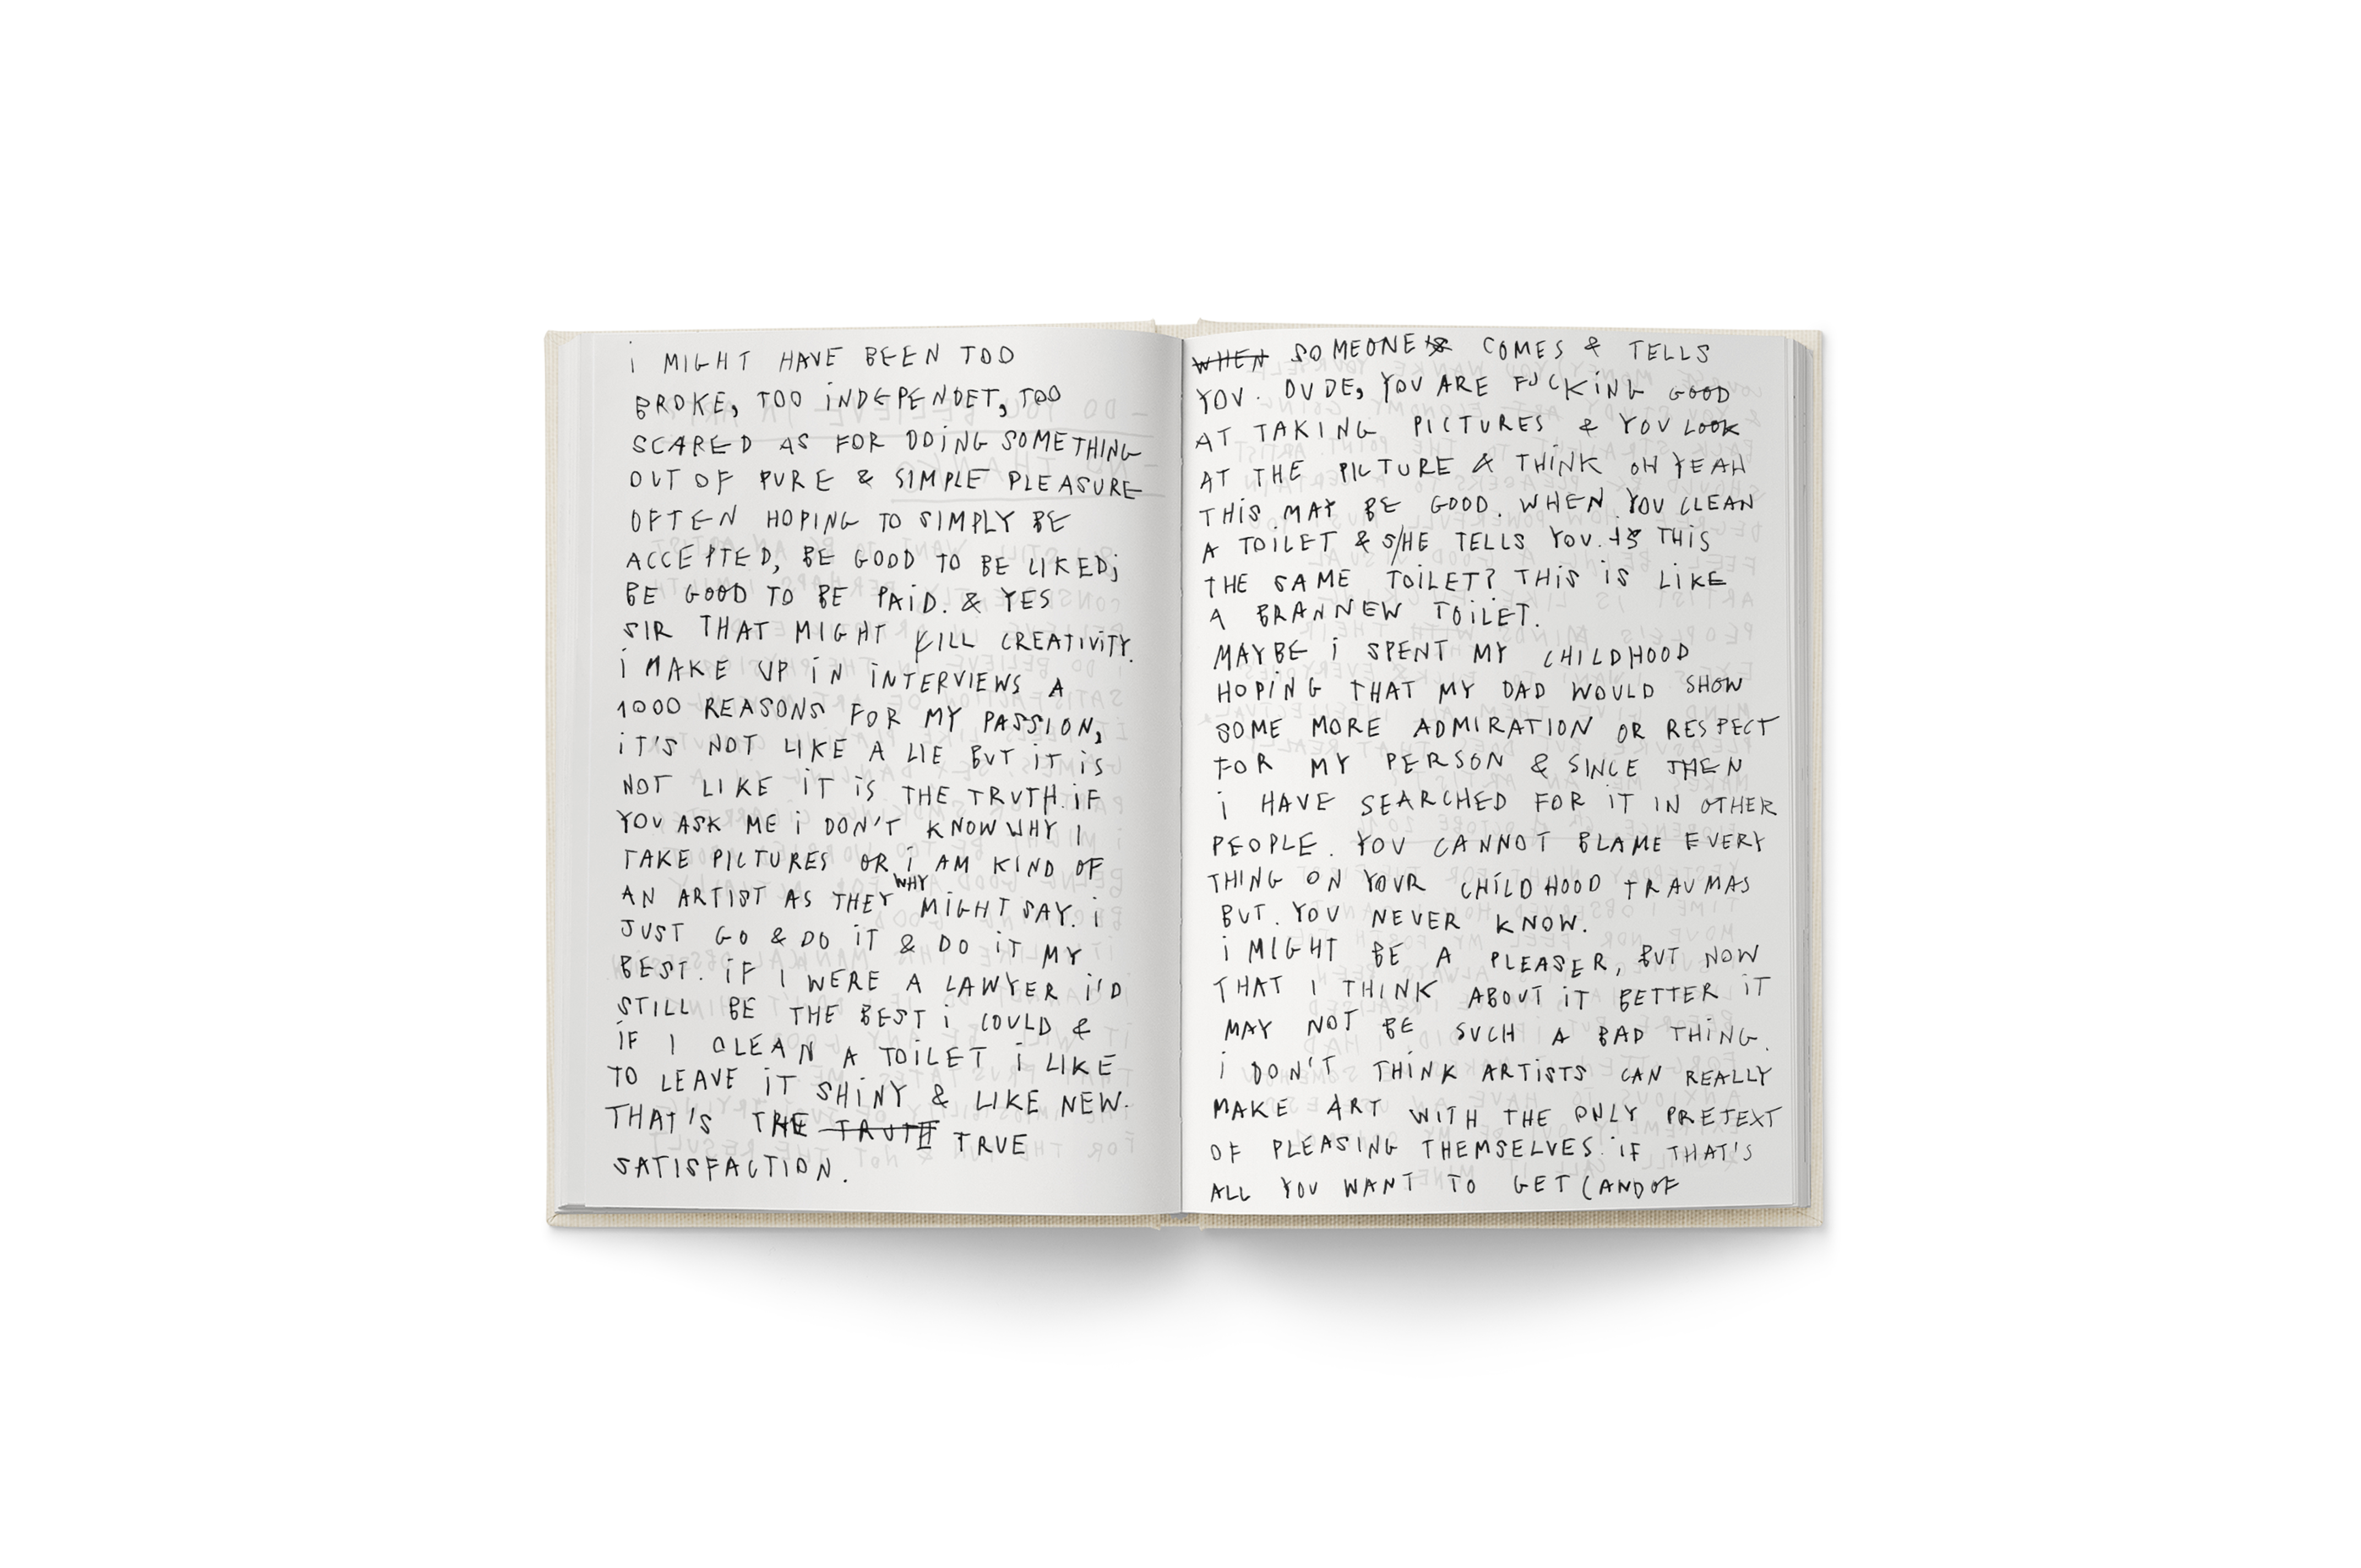 i MIGHT HAVE BEEN TOO
BROKE, TOO iNDEPENDET, TOO
SCARED AS FOR DOiNG SOMETHING
OUT OF PURE & SIMPLE PLEASURE
OFTEN HOPING TO SIMPLY BE
ACCEPTED, BE GOOD TO BE LIKED;
BE GOOD TO BE PAiD. & YES
SIR THAT MIGHT KILL CREATIViTY.
i MAKE UP iN iNTERVIEWS A
1000 REASONS FOR MY PASSION,
iT'S NOT LIKE A LIE BUT iT iS
NOT LIKE iT iS THE TRUTH. iF
YOU ASK ME i DON'T KNOW WHY I
TAKE PICTURES OR i AM KIND OF
WHY
AN ARTIST AS THEY MiGHT SAY. i
JUST GO & DO iT & DO iT MY
BEST. iF I WERE A LAWYER i'D
STILL BE THE BEST i COULD &
iF I CLEAN A TOiLET i LIKE
TO LEAVE iT SHiNY & LIKE NEW.
THAT'S THE TRUTH TRUE
SATISFACTION.
WHEN SOMEONE'S COMES & TELLS
YOU. DUDE, YOU ARE FUCKiNG GOOD
AT TAKING PICTURES & YOU LOOK
AT THE PICTURE & THiNK OH YEAH
THiS MAY BE GOOD. WHEN YOU CLEAN
A TOiLET & S/HE TELLS YOU. IS THIS
THE SAME TOiLET? THiS iS LiKE
A BRANNEW TOiLET.
MAYBE i SPENT MY CHILDHOOD
HOPiNG THAT MY DAD WOULD SHOW
SOME MORE ADMIRATION OR RESPECT
FOR MY PERSON & SINCE THEN
i HAVE SEARCHED FOR iT IN OTHER
PEOPLE. YOU CANNOT BLAME EVERY
THING ON YOUR CHiLDHOOD TRAUMAS
BUT. YOU NEVER KNOW.
i MIGHT BE A PLEASER, BUT NOW
THAT I THINK ABOUT iT BETTER iT
MAY NOT BE SUCH A BAD THiNG.
i DON'T THiNK ARTiSTS CAN REALLY
MAKE ART WiTH THE ONLY PRETEXT
OF PLEASING THEMSELVES. iF THAT'S
ALL YOU WANT TO GET (AND OF